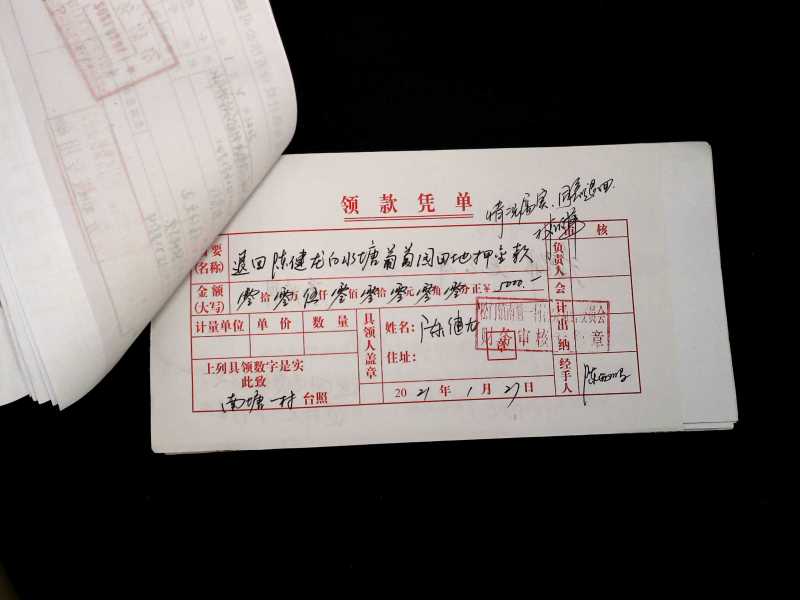 领款凭单
情况属实,同意退回.
审核
摘要(名称) 退回陈健龙白水塘葡萄园田地押金款
负责人
金额(大写) 零拾零万伍仟零佰零拾零元零角零分正¥ 5000.—
会计
计量单位 单价 数量
具领人盖章
姓名: 陈健龙
住址:
财务审核 章
出纳
上列具领数字是实
此致
南塘一村 台照
2021年1月27日
经手人